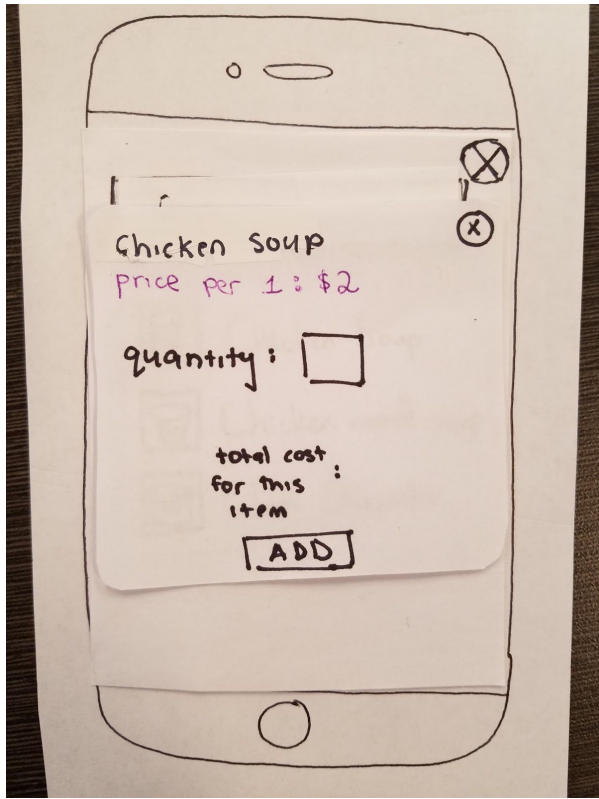 Chicken Soup
price per 1: $2
quantity:
total cost
for this :
item
ADD